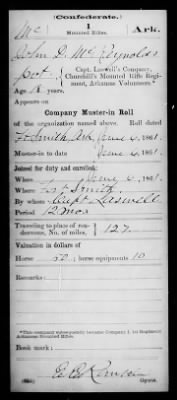 (Confederate.)
Mc 1 Ark.
Mounted Rifles.
John D. McReynolds
pvt, Capt. Company,
Churchill's Mounted Rifle Regiment, Arkansas Volunteers.*
Age 18 years.
Appears on
Company Muster-in Roll
of the organization named above. Roll dated
Ft Smith Ark June 4, 1861.
Muster-in to date June 4, 1861.
Joined for duty and enrolled:
When June 4, 1861.
Where Ft Smith
By whom Capt
Period 12 mos
Traveling to place of rendezvous, No. of miles, 127
Valuation in dollars of
Horse horse equipments 10
Remarks:
*This company subsequently became Company 1st Regiment Arkansas Mounted Rifles.
Book mark:
Copyist.